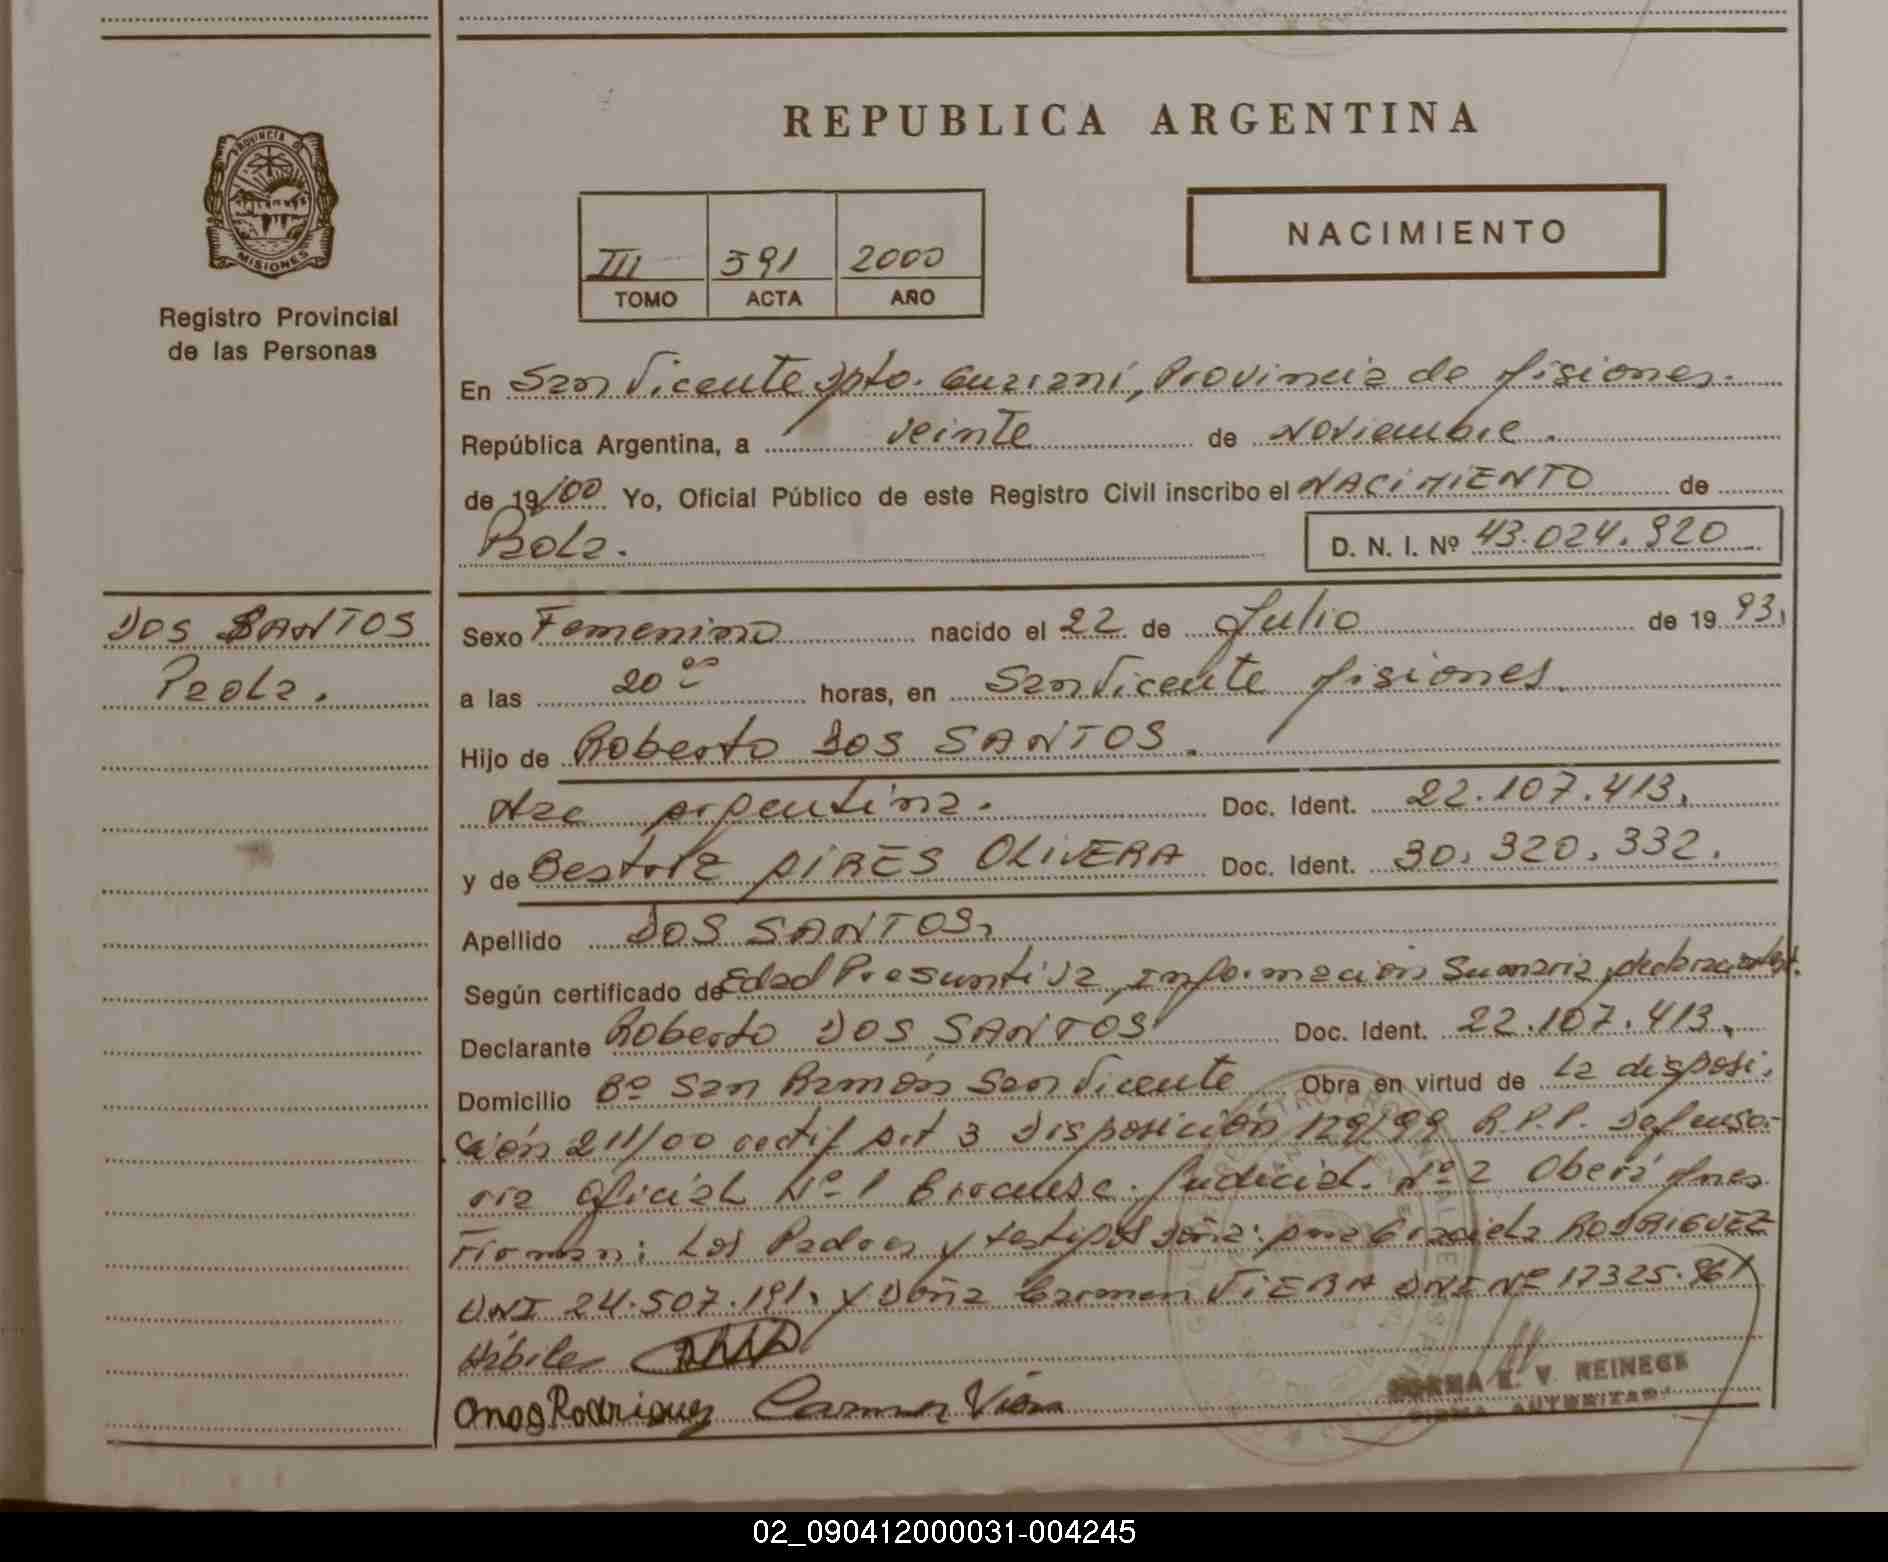 REPUBLICA ARGENTINA
PROVINCIA DE
MISIONES
Registro Provincial
de las Personas
III 591 2000
TOMO ACTA AÑO
NACIMIENTO
En San Vicente Dpto. Guarani, Provincia de Misiones.
República Argentina, a veinte de Noviembre.
de 19/00 Yo, Oficial Público de este Registro Civil inscribo el NACIMIENTO de
Paola. D. N. I. Nº 43.024.920
DOS SANTOS
Paola.
Sexo Femenino nacido el 22 de Julio de 1993,
a las 20 00 horas, en San Vicente Misiones.
Hijo de Roberto DOS SANTOS.
Nac argentina. Doc. Ident. 22.107.413.
y de Beatriz PIRES OLIVERA Doc. Ident. 30.320.332.
Apellido DOS SANTOS,
Según certificado de Edad Presuntiva, Información Sumaria,
Declarante Roberto DOS SANTOS Doc. Ident. 22.107.413.
Domicilio Bº San Ramón San Vicente Obra en virtud de La disposi.
ción 211/00 rectif art 3 Disposición 129/99 R.P.P. Defenso-
ria Oficial Nº 1 Judicial. Nº 2 Oberá Mnes
Firman: Los Padres y testigos Doña: Graciela RODRIGUEZ
DNI 24.507.191. y Doña Carmen VIERA DNI Nº 17325.961
Hábiles
Rodriguez Carmen Viera
NORMA E. V. REINECK
FIRMA AUTORIZADA
02_090412000031-004245